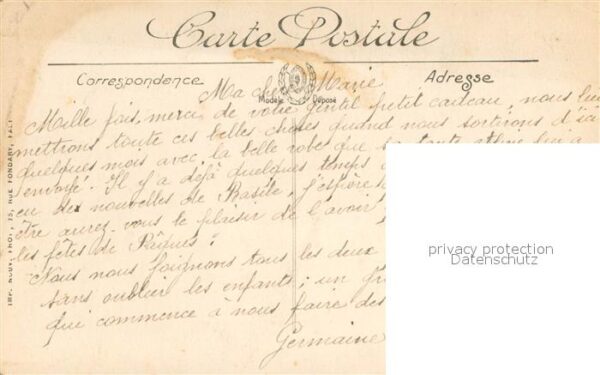 Carte Postale
Correspondance
Adresse
Modèle Déposé
Ma chè Marie
Mille fois merci de votre gentil petit cadeau, nous lui
mettrons toute ces belles choses quand nous sortirons d'ici
quelques mois avec la belle robe que sa tante lui a
envoyé. Il y a déjà quelques temps
eu des nouvelles de Basile, j'espère
être aurez-vous le plaisir de l'avoir
les fêtes de Pâques;
Nous nous joignons tous les deux
sans oublier les enfants; un gr
qui commence à nous faire des
Germaine
IMP. NOUV. PROT, 15, RUE FONDARY, PARI
privacy protection
Datenschutz